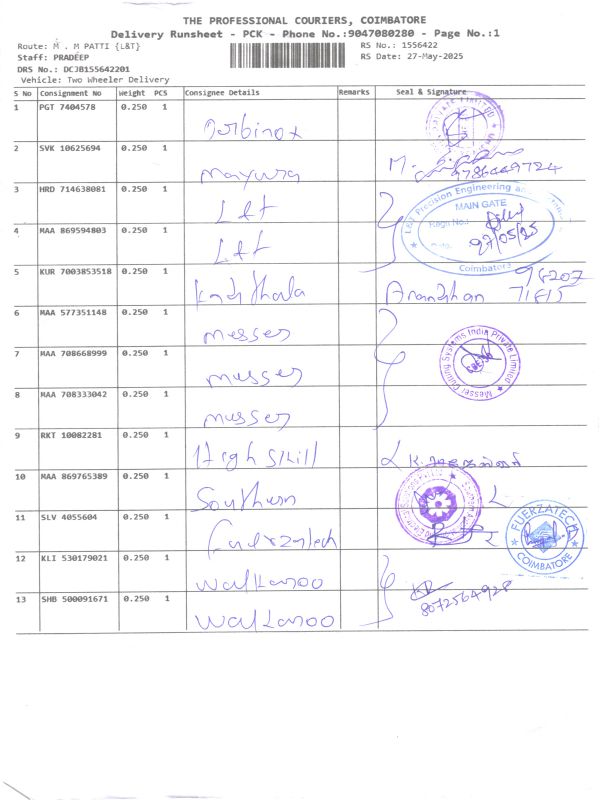 THE PROFESSIONAL COURIERS, COIMBATORE
Delivery Runsheet - PCK - Phone No.:9047080280 - Page No.:1
Route: M . M PATTI {L&T}
RS No.: 1556422
Staff: PRADEEP
RS Date: 27-May-2025
DRS No.: DCJB155642201
Vehicle: Two Wheeler Delivery
S No Consignment No Weight PCS Consignee Details Remarks Seal & Signature
1 PGT 7404578 0.250 1
2 SVK 10625694 0.250 1 Mayura 9786449724
3 HRD 714638081 0.250 1 L&T
L&T Precision Engineering and
MAIN GATE
27/05/25
Coimbatore
4 MAA 869594803 0.250 1 L&T
5 KUR 7003853518 0.250 1
6 MAA 577351148 0.250 1 messer
7 MAA 708668999 0.250 1 messer
Messer Cutting Systems India Private Limited
8 MAA 708333042 0.250 1 messer
9 RKT 10082281 0.250 1 High Skill
10 MAA 869765389 0.250 1 Southern
11 SLV 4055604 0.250 1
FUERZATECH
COIMBATORE
12 KLI 530179021 0.250 1 walkaroo
13 SHB 500091671 0.250 1 walkaroo 8072564928